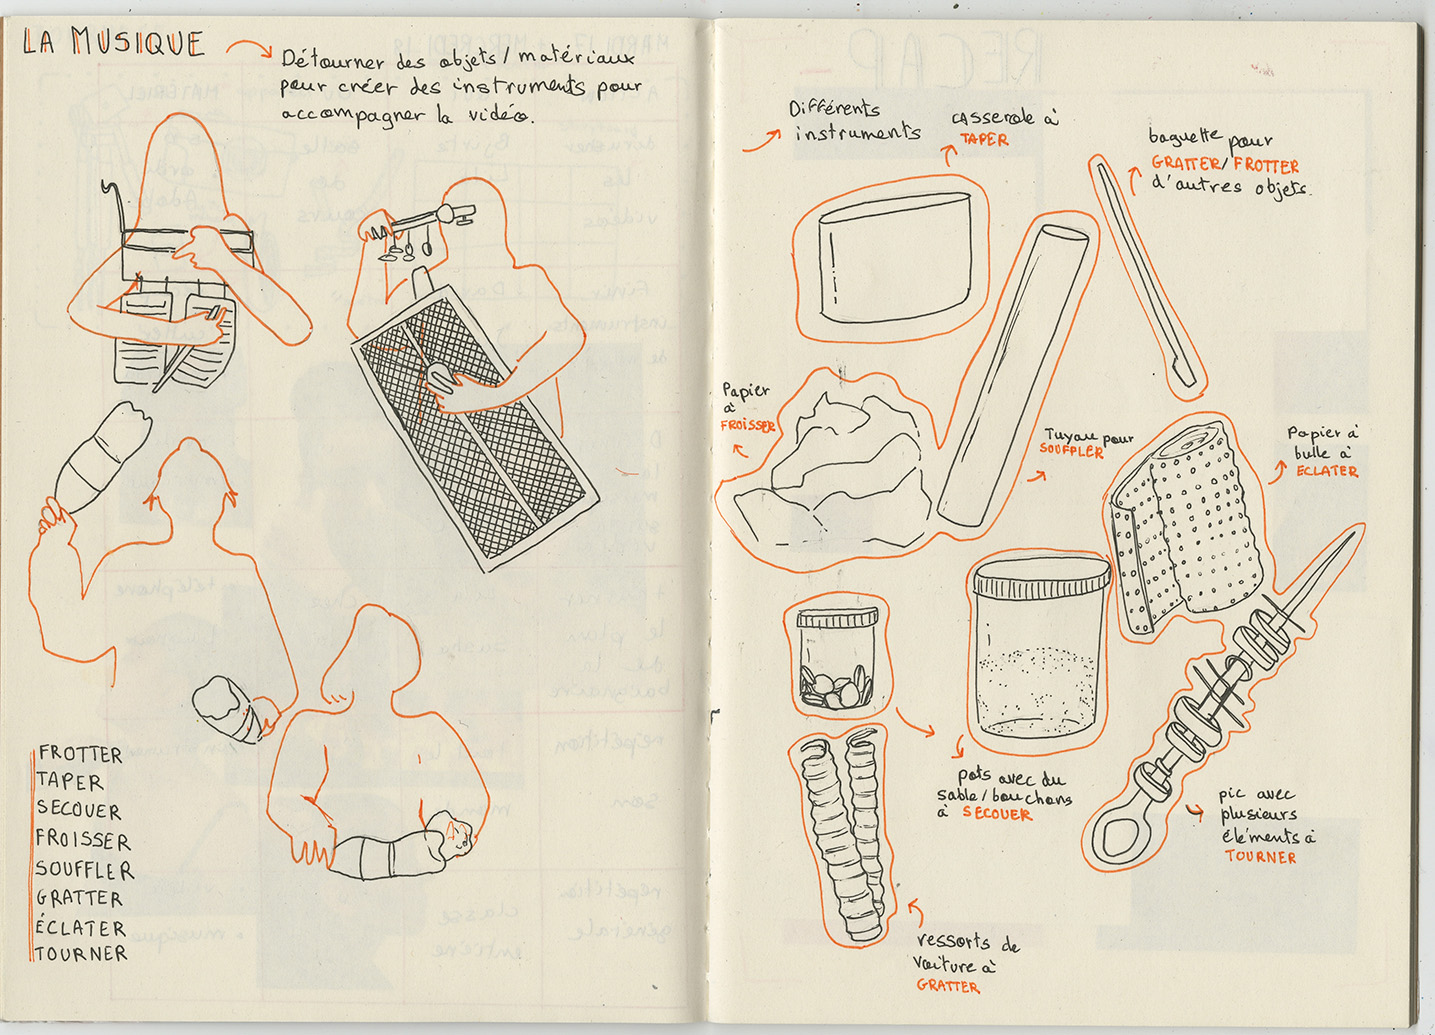 LA MUSIQUE
Détourner des objets / matériaux
pour créer des instruments pour
accompagner la vidéo.
FROTTER
TAPER
SECOUER
FROISSER
SOUFFLER
GRATTER
ÉCLATER
TOURNER
Différents
instruments
casserole à
TAPER
baguette pour
GRATTER/FROTTER
d'autres objets.
Papier
à
FROISSER
Tuyau pour
SOUFFLER
Papier à
bulle à
ECLATER
pots avec du
sable/bouchons
à SECOUER
pic avec
plusieurs
éléments à
TOURNER
ressorts de
voiture à
GRATTER